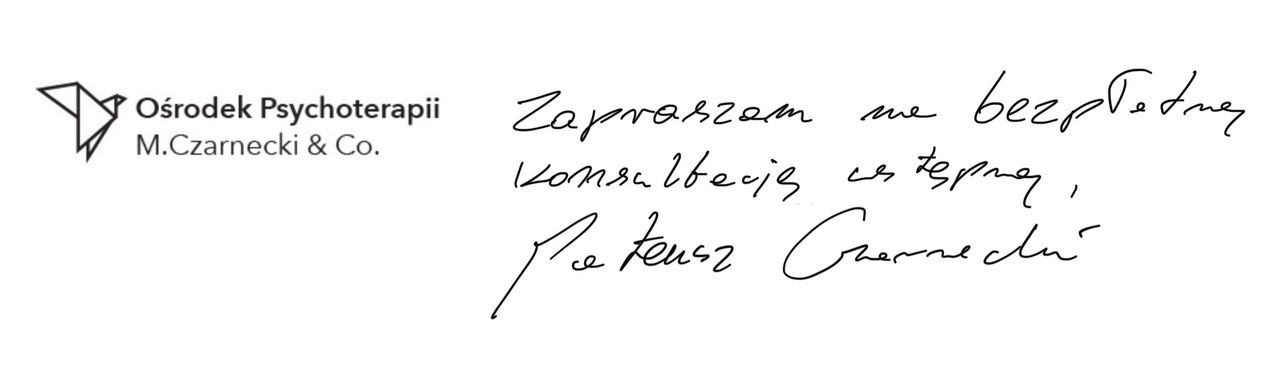 Ośrodek Psychoterapii
M.Czarnecki & Co.
Zapraszam na bezpłatną
konsultację wstępną,
Mateusz Czarnecki